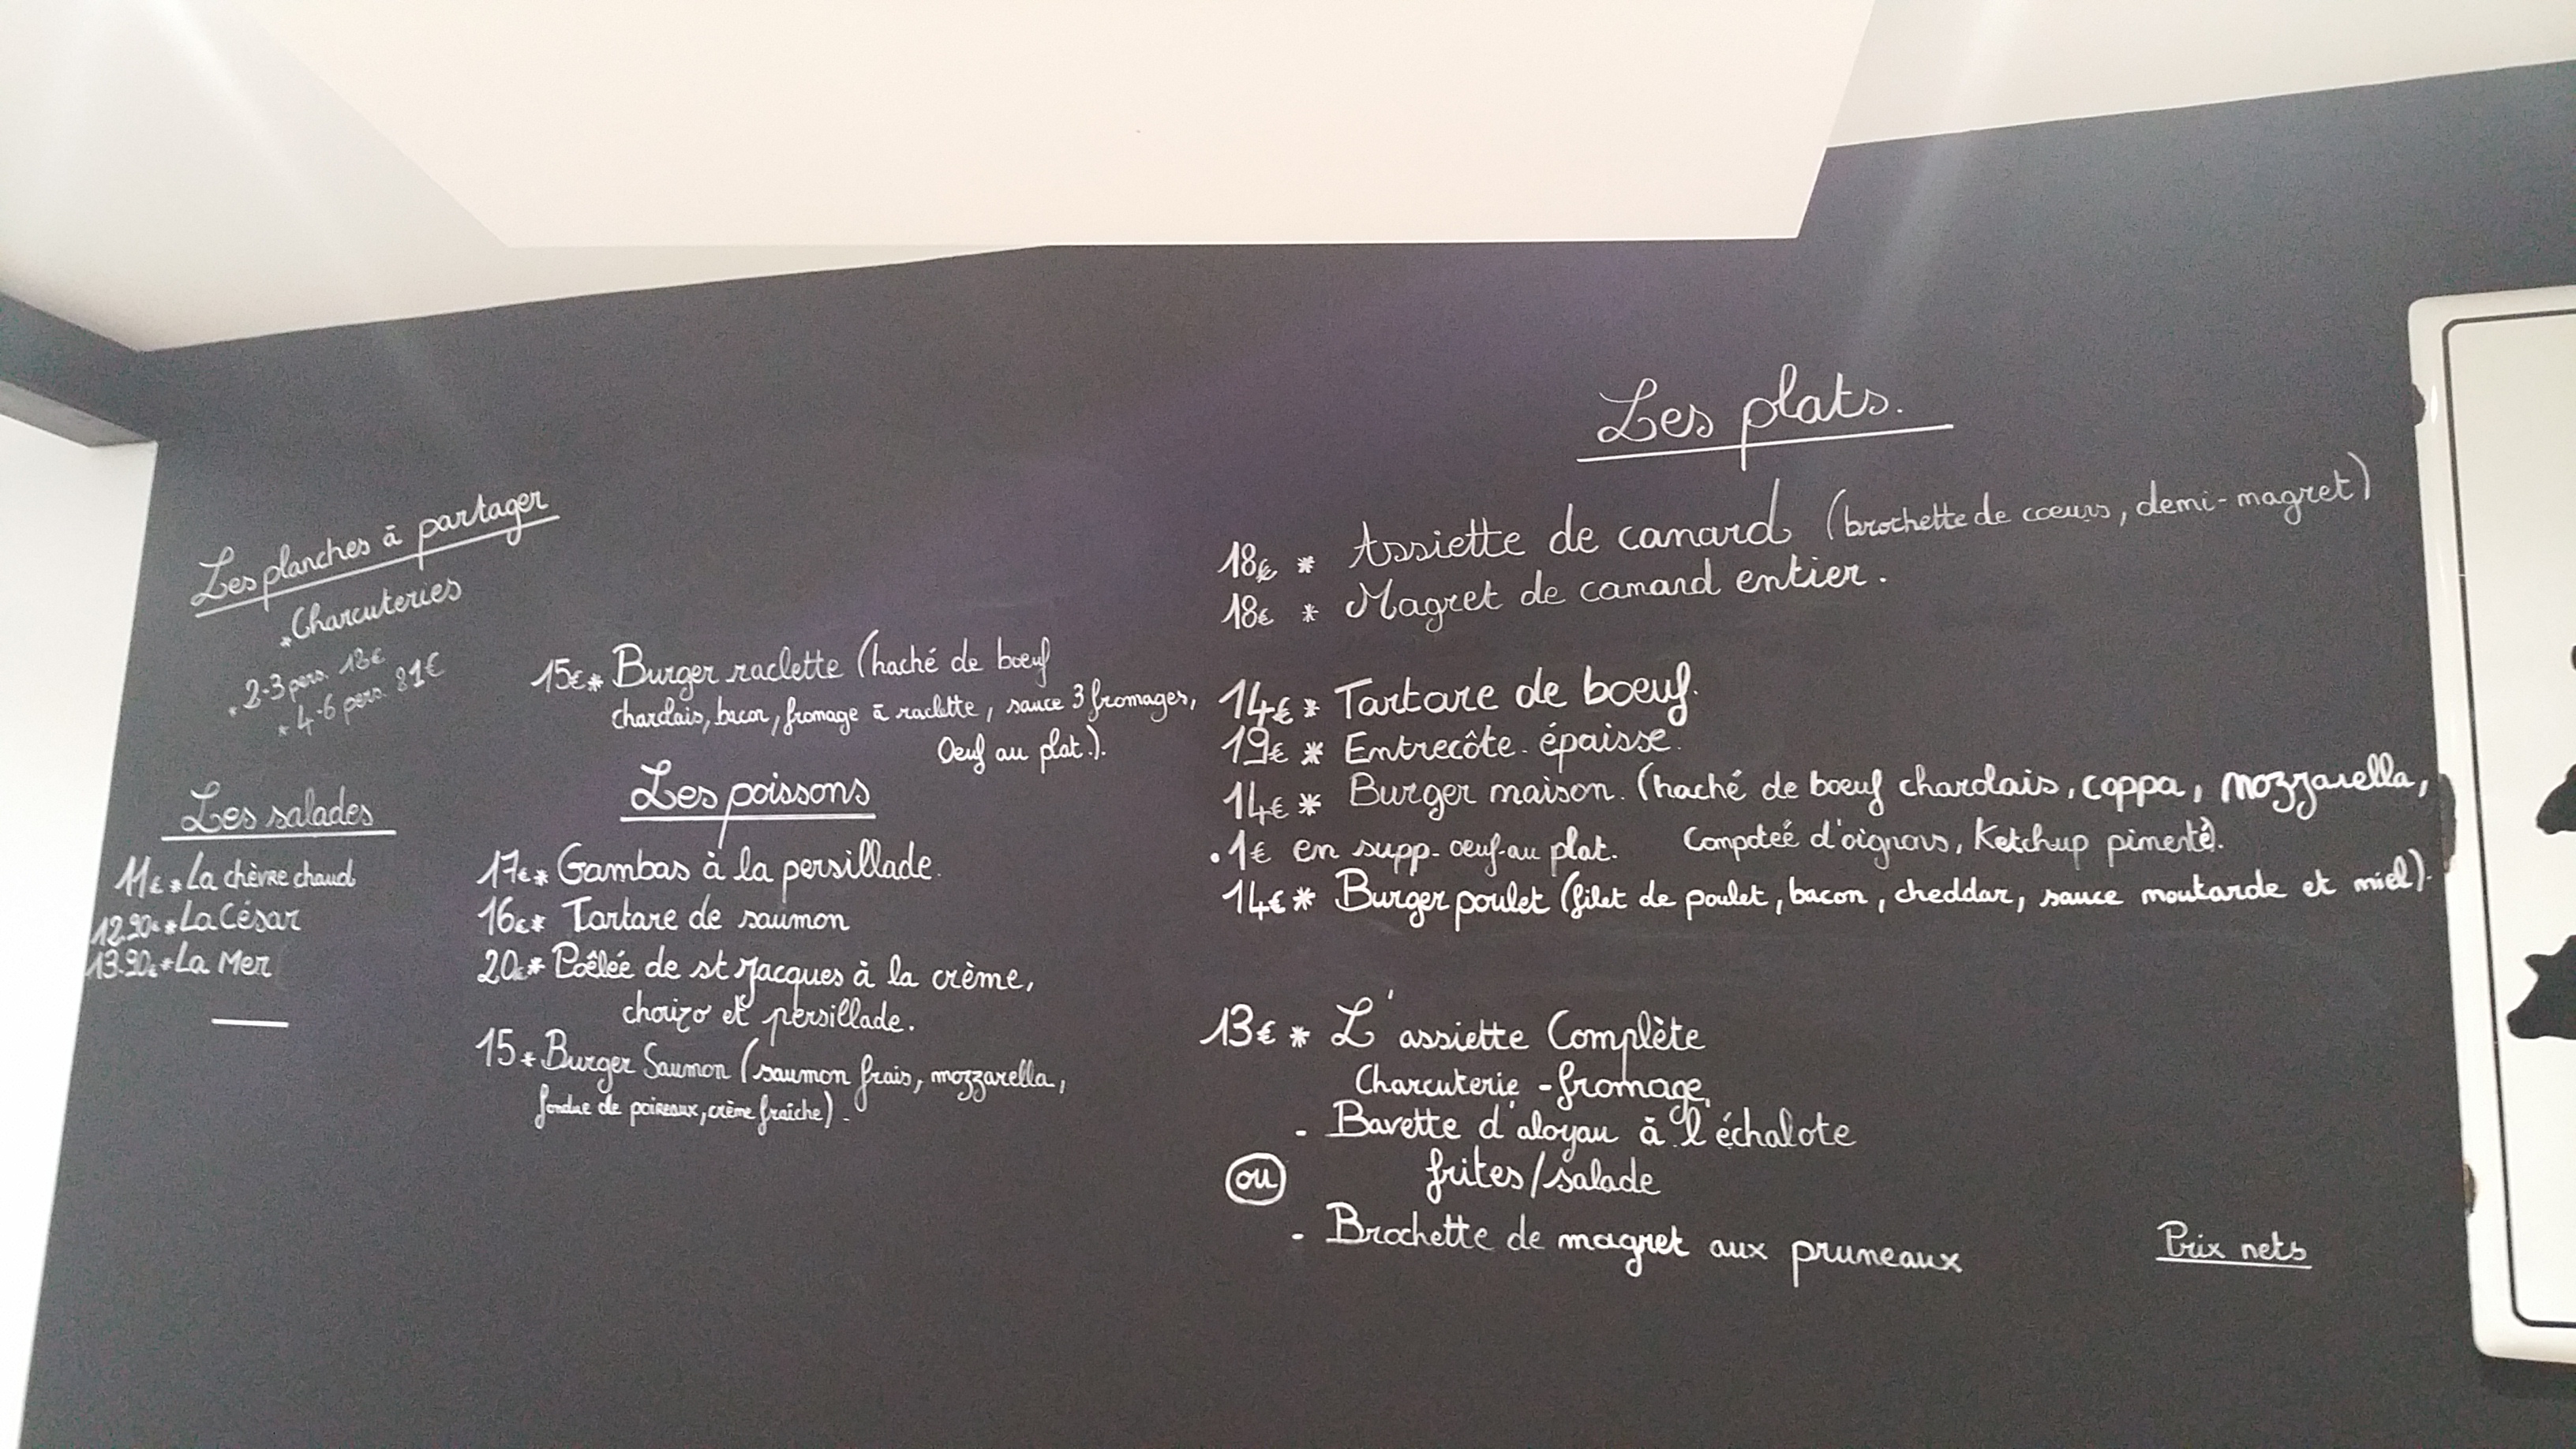 Les planches à partager
* Charcuteries
* 2-3 pers. 13€
* 4-6 pers. 21€
Les salades
11€ * La chèvre chaud
12.90€ * La César
13.90€ * La Mer
15€ * Burger raclette (haché de boeuf
charolais, bacon, fromage à raclette, sauce 3 fromages,
Oeuf au plat.).
Les poissons
17€ * Gambas à la persillade.
16€ * Tartare de saumon
20€ * Poêlée de st Jacques à la crème,
chorizo et persillade.
15 * Burger Saumon (saumon frais, mozzarella,
fondue de poireaux, crème fraîche).
Les plats.
18€ * Assiette de canard (brochette de coeurs, demi-magret)
18€ * Magret de canard entier.
14€ * Tartare de boeuf.
19€ * Entrecôte épaisse.
14€ * Burger maison. (haché de boeuf charolais, coppa, mozzarella,
.1€ en supp. oeuf au plat. Compotée d'oignons, Ketchup pimenté).
14€ * Burger poulet (filet de poulet, bacon, cheddar, sauce moutarde et miel).
13€ * L'assiette Complète
Charcuterie - fromage.
- Bavette d'aloyau à l'échalote
frites/salade
ou
- Brochette de magret aux pruneaux
Prix nets